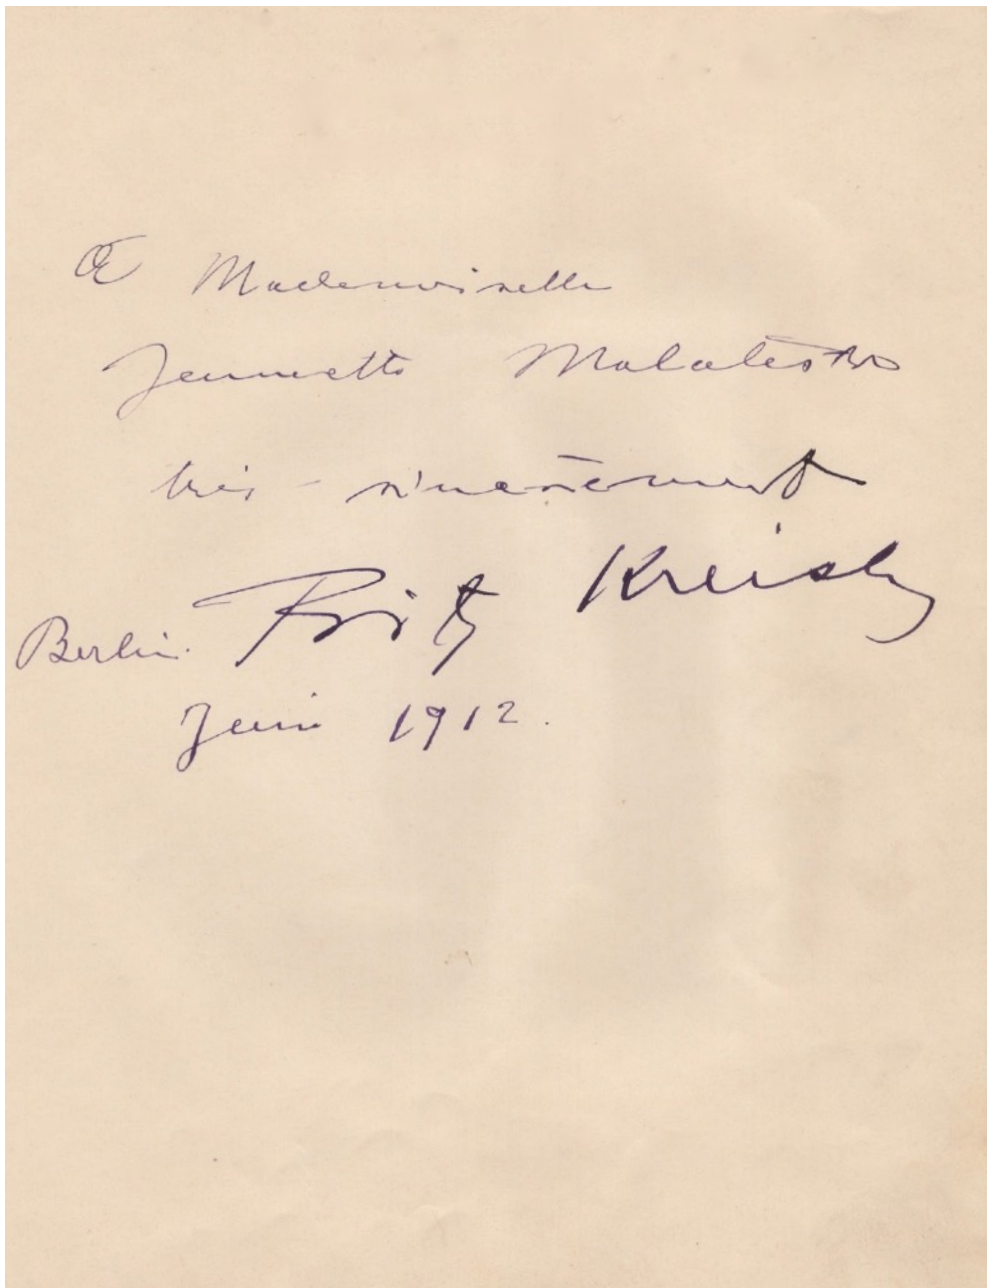 A Mademoiselle
Jeannette Malatesta
très-sincèrement
Fritz Kreisler
Berlin.
Juin 1912.